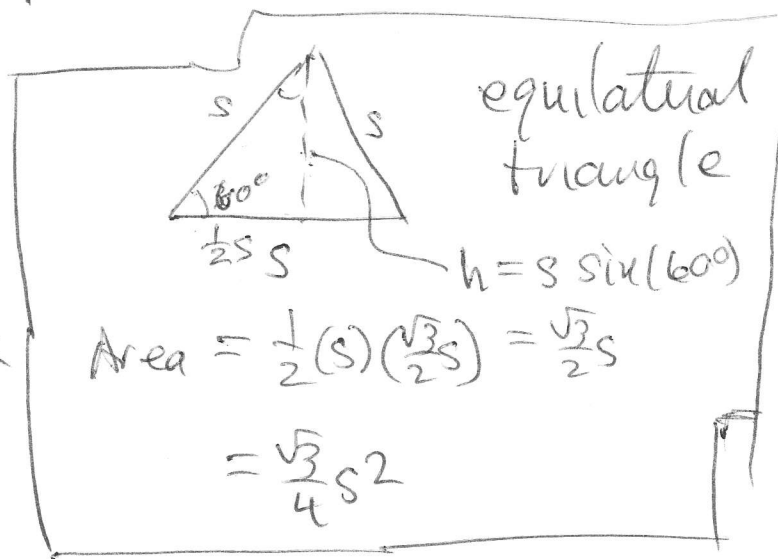 equilateral
triangle
s
s
60°
½s s
h = s sin(60°)
Area = ½(s)(√3/2 s) = √3/2 s
= √3/4 s²